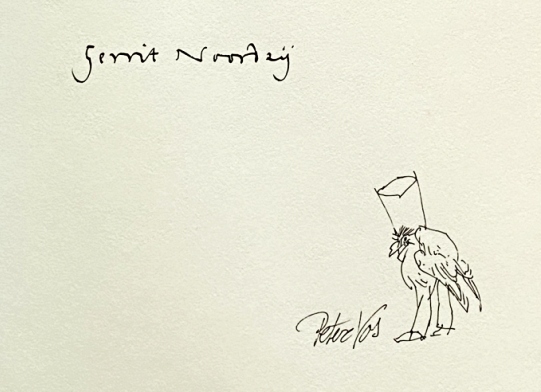 Gerrit Noordzij
Peter Vos